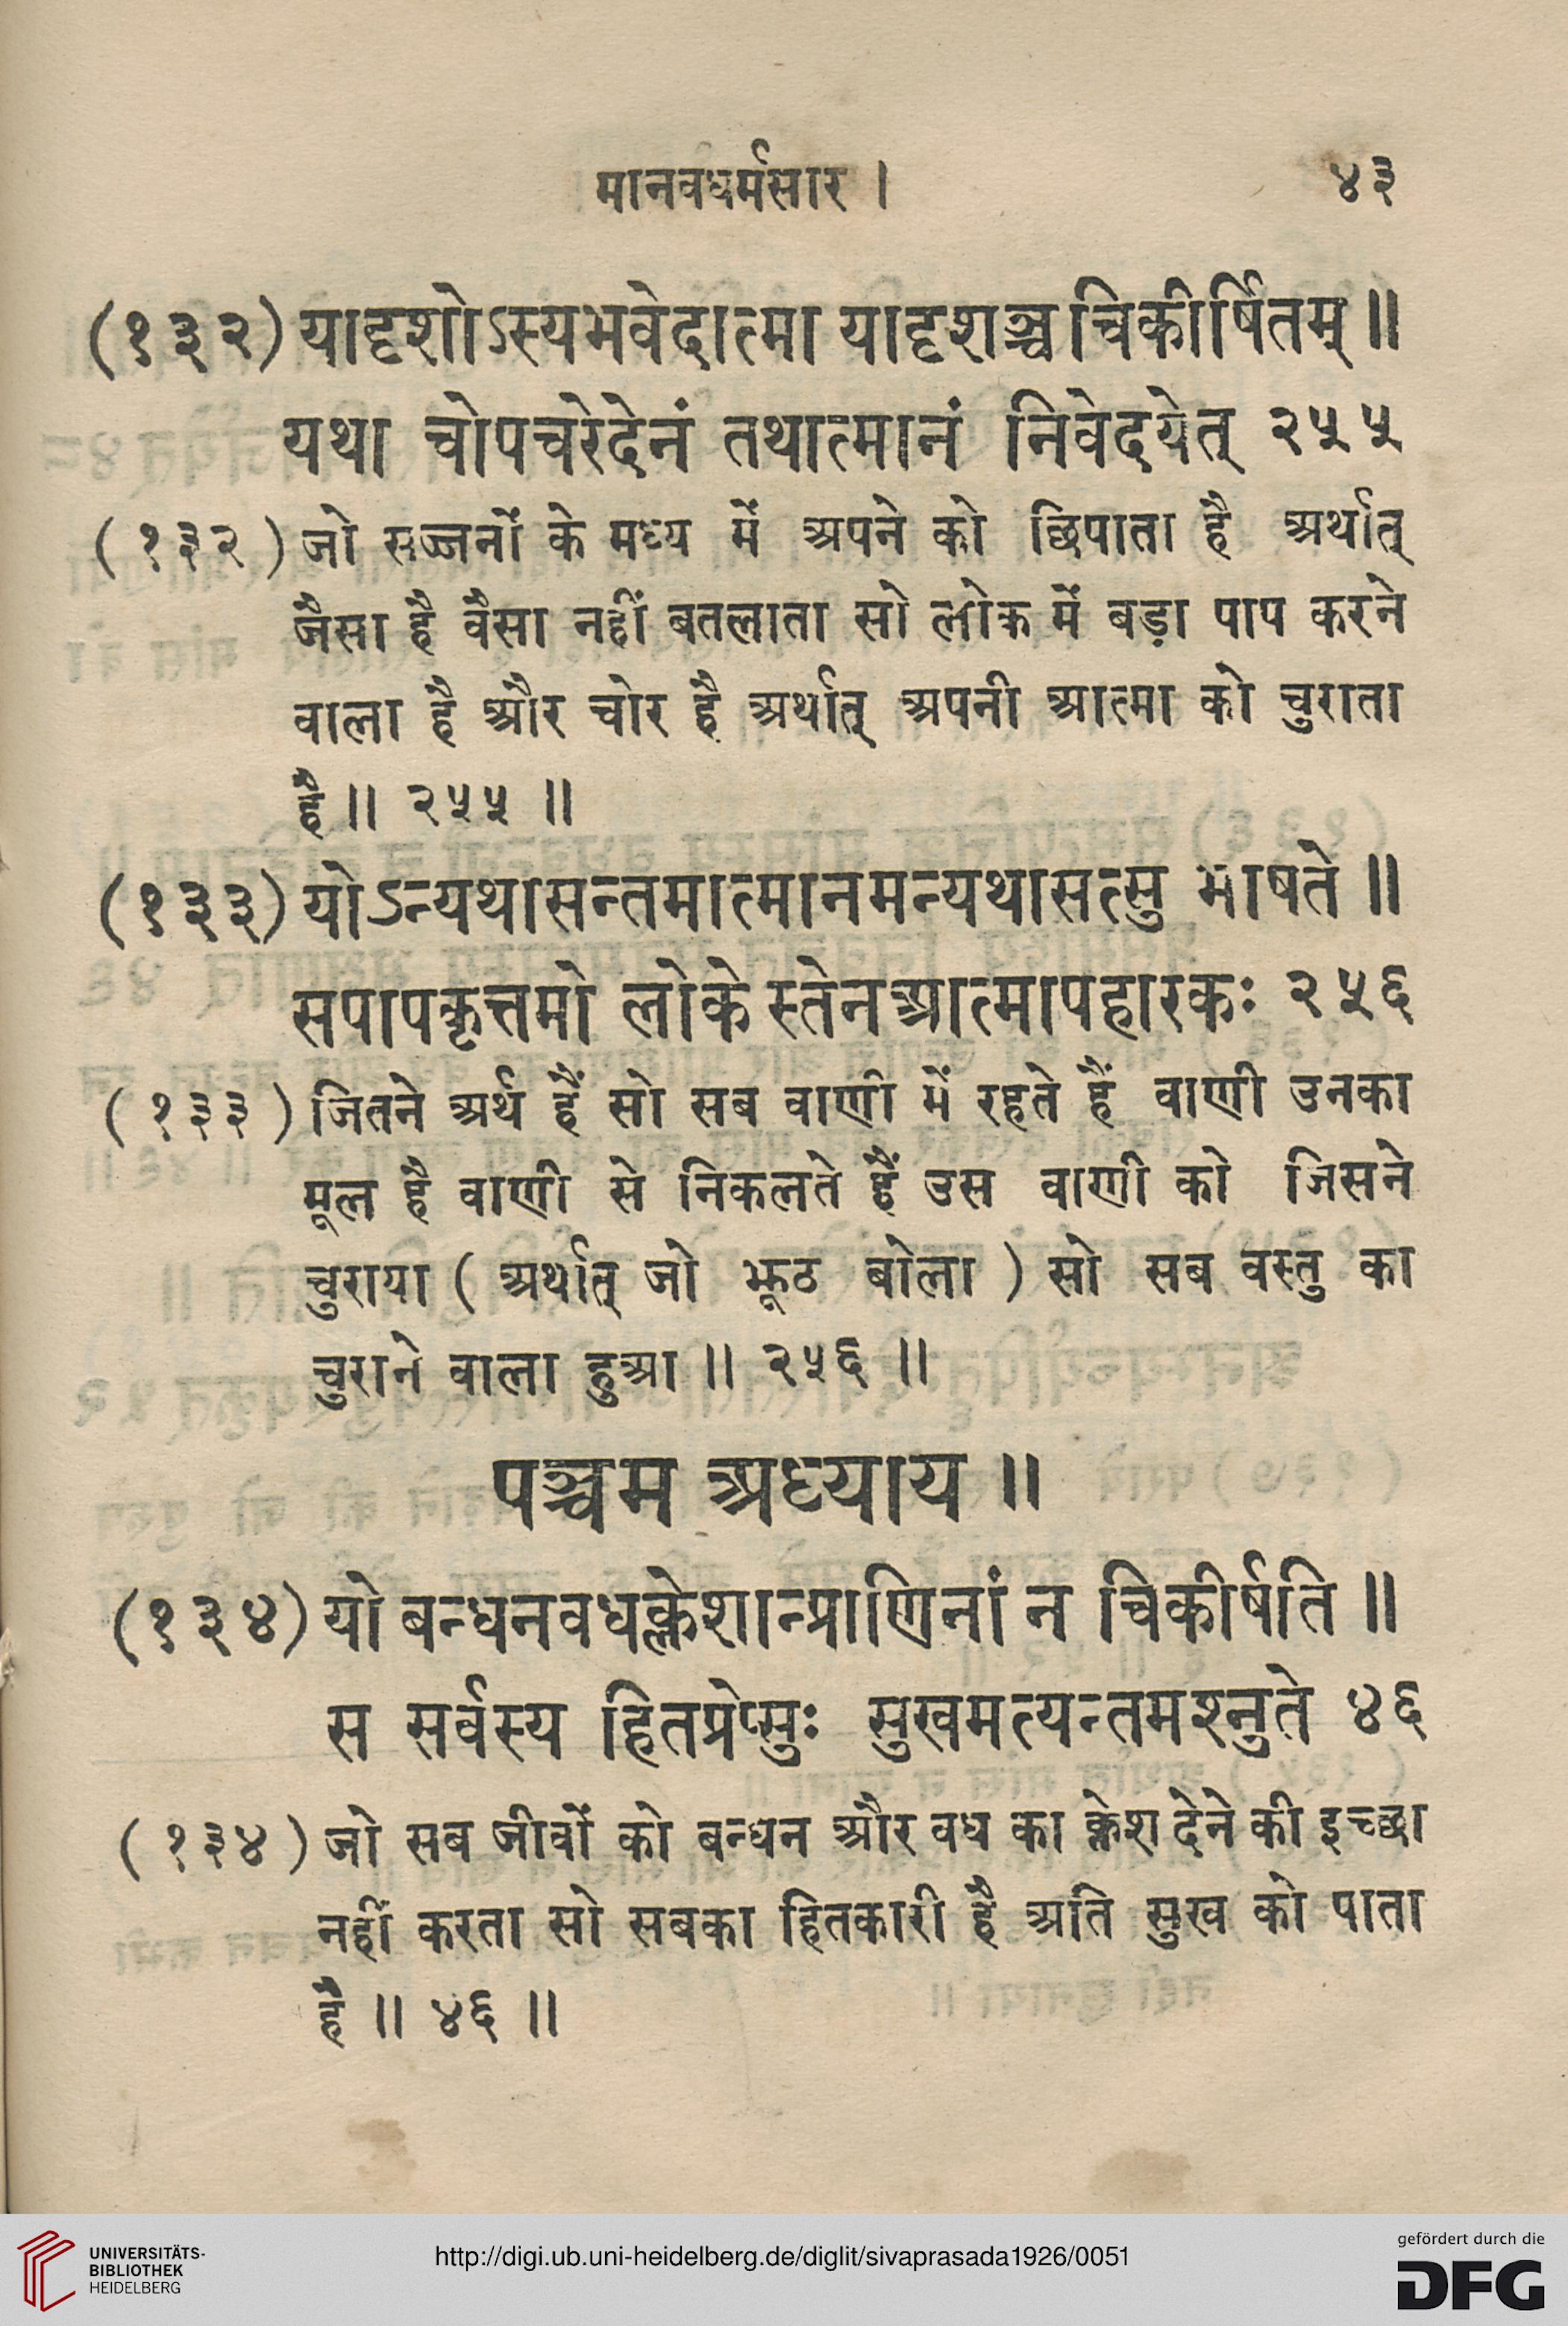 मानवधर्मसार । ४३
(१३२) यादृशोऽस्यभवेदात्मा यादृशञ्चचिकीर्षितम् ॥
यथा चोपचरेदेनं तथात्मानं निवेदयेत् २५५
( १३२ ) जो सज्जनों के मध्य में अपने को छिपाता है अर्थात्
जैसा है वैसा नहीं बतलाता सो लोक में बड़ा पाप करने
वाला है और चोर है अर्थात् अपनी आत्मा को चुराता
है ॥ २५५ ॥
(१३३) योऽन्यथासन्तमात्मानमन्यथासत्सु भाषते ॥
सपापकृत्तमो लोके स्तेनआत्मापहारकः २५६
( १३३ ) जितने अर्थ हैं सो सब वाणी में रहते हैं वाणी उनका
मूल है वाणी से निकलते हैं उस वाणी को जिसने
चुराया ( अर्थात् जो झूठ बोला ) सो सब वस्तु का
चुराने वाला हुआ ॥ २५६ ॥
पञ्चम अध्याय ॥
(१३४) यो बन्धनवधक्लेशान्प्राणिनां न चिकीर्षति ॥
स सर्वस्य हितप्रेप्सुः सुखमत्यन्तमश्नुते ४६
( १३४ ) जो सब जीवों को बन्धन और वध का क्लेश देने की इच्छा
नहीं करता सो सबका हितकारी है अति सुख को पाता
है ॥ ४६ ॥
UNIVERSITÄTS-
BIBLIOTHEK
HEIDELBERG
http://digi.ub.uni-heidelberg.de/diglit/sivaprasada1926/0051
gefördert durch die
DFG